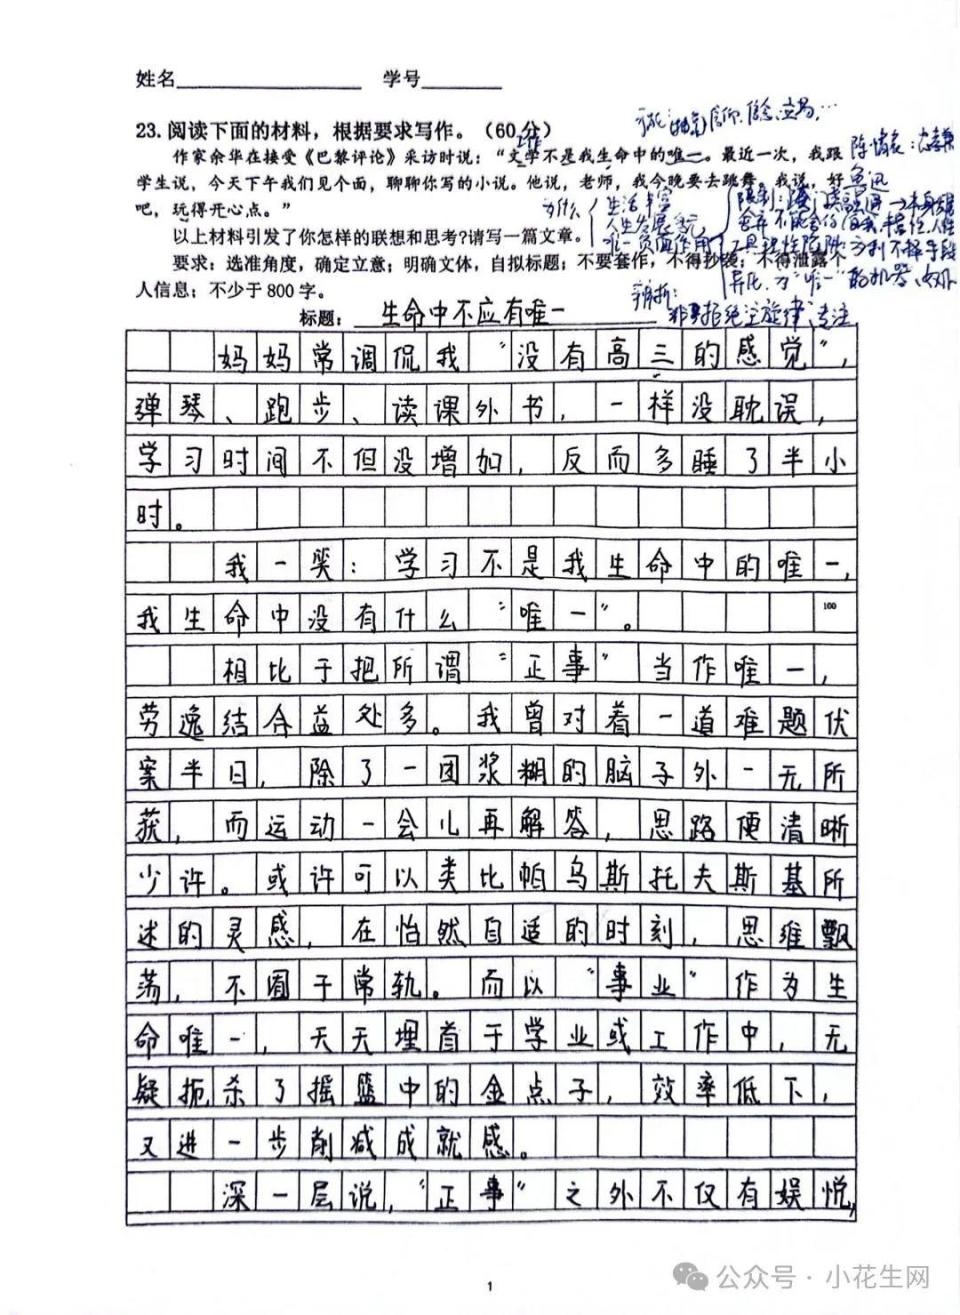 姓名 学号
23.阅读下面的材料，根据要求写作。（60分）
作家余华在接受《巴黎评论》采访时说：“文学不是我生命中的唯一。最近一次，我跟
学生说，今天下午我们见个面，聊聊你写的小说。他说，老师，我今晚要去跳舞，我说，好
吧，玩得开心点。”
以上材料引发了你怎样的联想和思考?请写一篇文章。
要求：选准角度，确定立意；明确文体，自拟标题；不要套作，不得抄袭；不得泄露个
人信息；不少于800字。
陈情表：
鲁迅
为什么
生活丰富
人生发展
唯一 负面作用
限制：
工具理性陷阱
异化：为“唯一”的机器、奴仆
辨析：
非拒绝主旋律、专注
标题：生命中不应有唯一
妈妈常调侃我“没有高三的感觉”，
弹琴、跑步、读课外书，一样没耽误，
学习时间不但没增加，反而多睡了半小
时。
我一笑：学习不是我生命中的唯一，
我生命中没有什么“唯一”。
100
相比于把所谓“正事”当作唯一，
劳逸结合益处多。我曾对着一道难题伏
案半日，除了一团浆糊的脑子外一无所
获，而运动一会儿再解答，思路便清晰
少许。或许可以类比帕乌斯托夫斯基所
述的灵感，在怡然自适的时刻，思维飘
荡，不囿于常轨。而以“事业”作为生
命唯一，天天埋首于学业或工作中，无
疑扼杀了摇篮中的金点子，效率低下，
又进一步削减成就感。
深一层说，“正事”之外不仅有娱悦，
1
公众号·小花生网